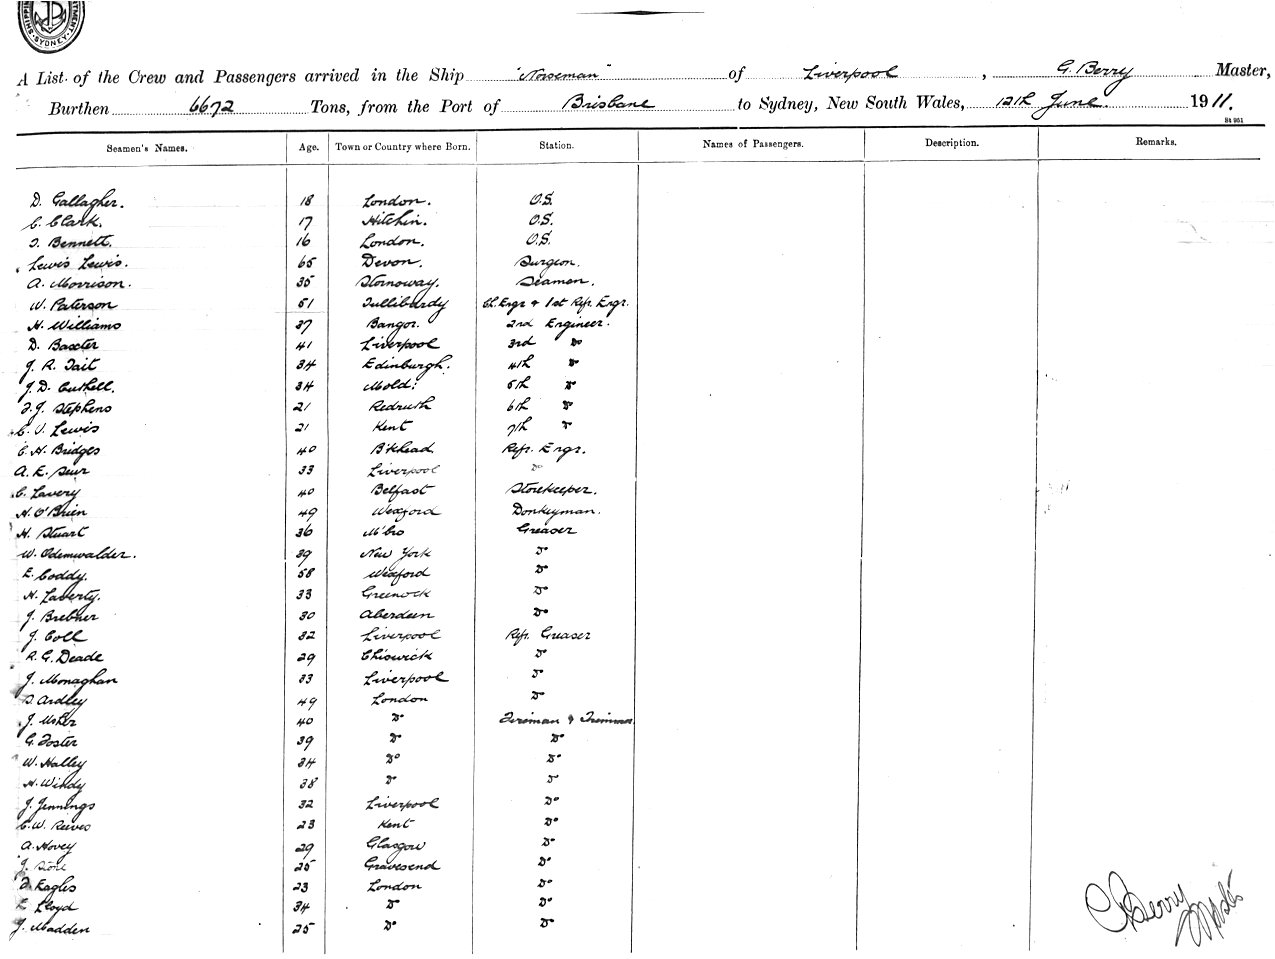 SYDNEY.
A List of the Crew and Passengers arrived in the Ship "Norseman" of Liverpool, G. Berry Master,
Burthen 6672 Tons, from the Port of Brisbane to Sydney, New South Wales, 12th June 1911.
St 951
Seamen's Names. Age. Town or Country where Born. Station. Names of Passengers. Description. Remarks.
D. Gallagher. 18 London. O.S.
C. Clark. 17 Hitchin. O.S.
T. Bennett. 16 London. O.S.
Lewis Lewis. 65 Devon. Surgeon.
A. Morrison. 35 Stornoway. Seaman.
W. Paterson 51 Tullibardy Ch. Engr & 1st Refr. Engr.
H. Williams 37 Bangor. 2nd Engineer.
D. Baxter 41 Liverpool 3rd Do
J. R. Tait 34 Edinburgh. 4th Do
J. D. Cushell. 34 Mold. 5th Do
T. J. Stephens 21 Redruth 6th Do
C. V. Lewis 21 Kent 7th Do
C. H. Bridges 40 B'khead. Refr. Engr.
A. E. 33 Liverpool Do
C. Lavery 40 Belfast Storekeeper.
H. O'Brien 49 Wexford Donkeyman.
H. Stuart 36 M'bro Greaser
W. Odemwalder. 39 New York Do
E. Coddy. 58 Wexford Do
H. Laverty. 33 Greenock Do
J. Brebner 30 Aberdeen Do
J. Coll 32 Liverpool Refr. Greaser
R. G. Deade 29 Chiswick Do
J. Monaghan 33 Liverpool Do
D. Ardley 49 London Do
J. Usher 40 Do Fireman & Trimmer
G. Foster 39 Do Do
W. Halley 34 Do Do
H. Windy 38 Do Do
J. Jennings 32 Liverpool Do
C. W. Reeves 23 Kent Do
A. Hovey 29 Glasgow Do
J. Stone 25 Gravesend Do
D. Eagles 23 London Do
E. Lloyd 34 Do Do
J. Madden 25 Do Do
G Berry